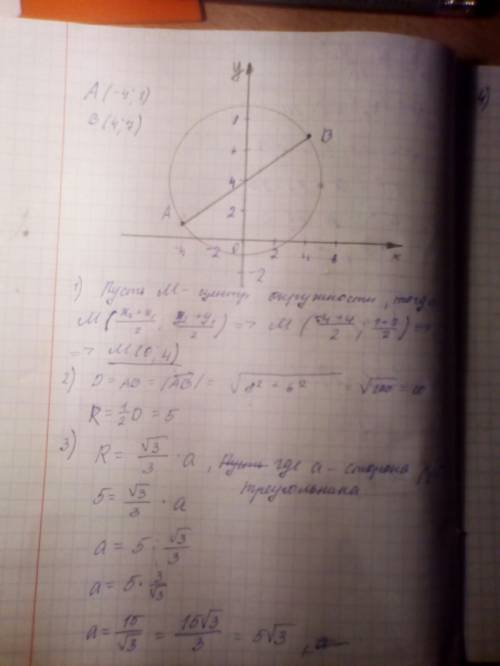 y
A(-4; 1)
B(4; 7)
8
6
B
4
A
2
-4 -2 0 2 4 6 x
-2
1) Пусть M - центр окружности, тогда
M((x₂+x₁)/2; (y₂+y₁)/2) => M((-4+4)/2; (1+7)/2) =>
=> M(0; 4)
2) D = AB = |AB| = √(8² + 6²) = √100 = 10
R = 1/2 D = 5
3) R = √3/3 · a, где a - сторона
треугольника
5 = √3/3 · a
a = 5 : √3/3
a = 5 · 3/√3
a = 15/√3 = 15√3/3 = 5√3
4)